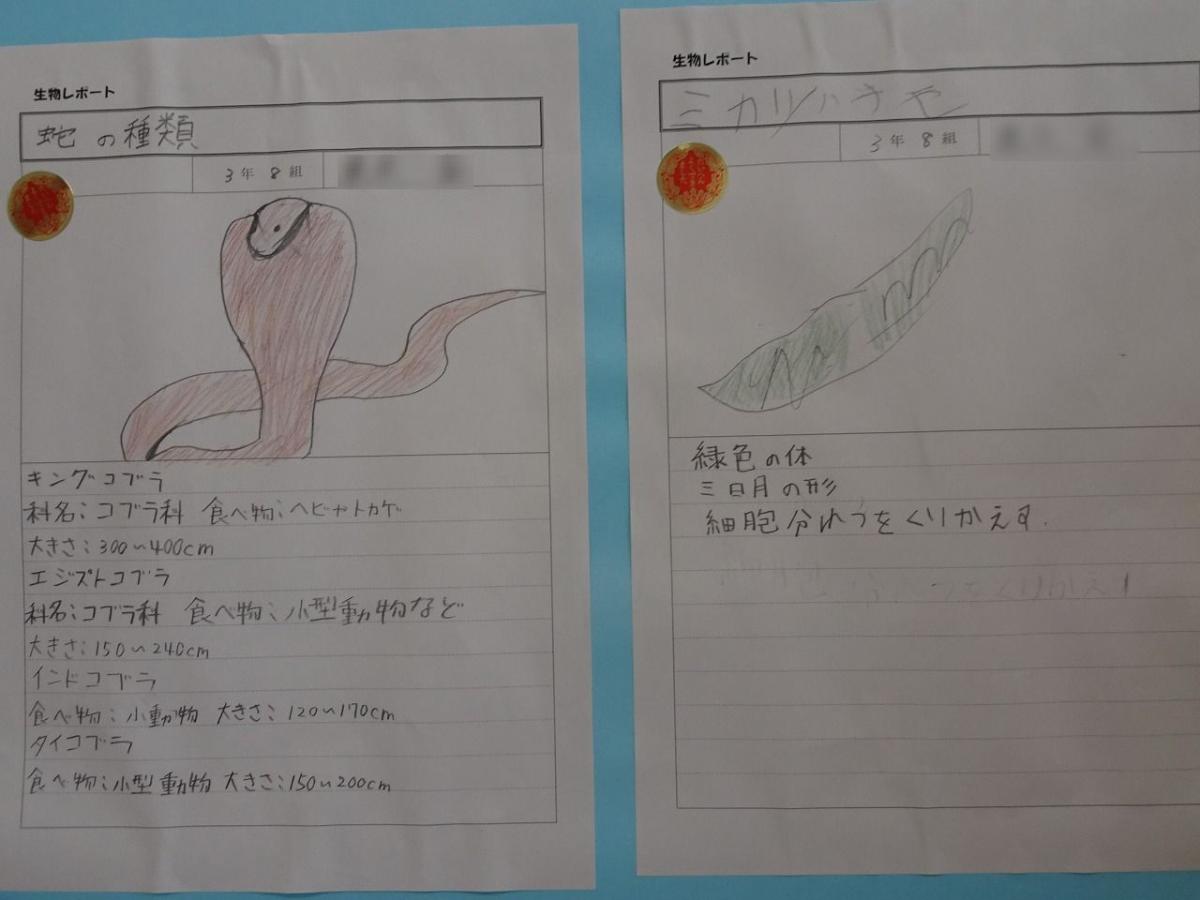 生物レポート
蛇の種類
3年 8組
キングコブラ
科名:コブラ科 食べ物:ヘビやトカゲ
大きさ:300〜400cm
エジプトコブラ
科名:コブラ科 食べ物:小型動物など
大きさ:150〜240cm
インドコブラ
食べ物:小動物 大きさ:120〜170cm
タイコブラ
食べ物:小型動物 大きさ:150〜200cm
生物レポート
3年 8組
緑色の体
三日月の形
細胞分れつをくりかえす.
分れつをくりかえ